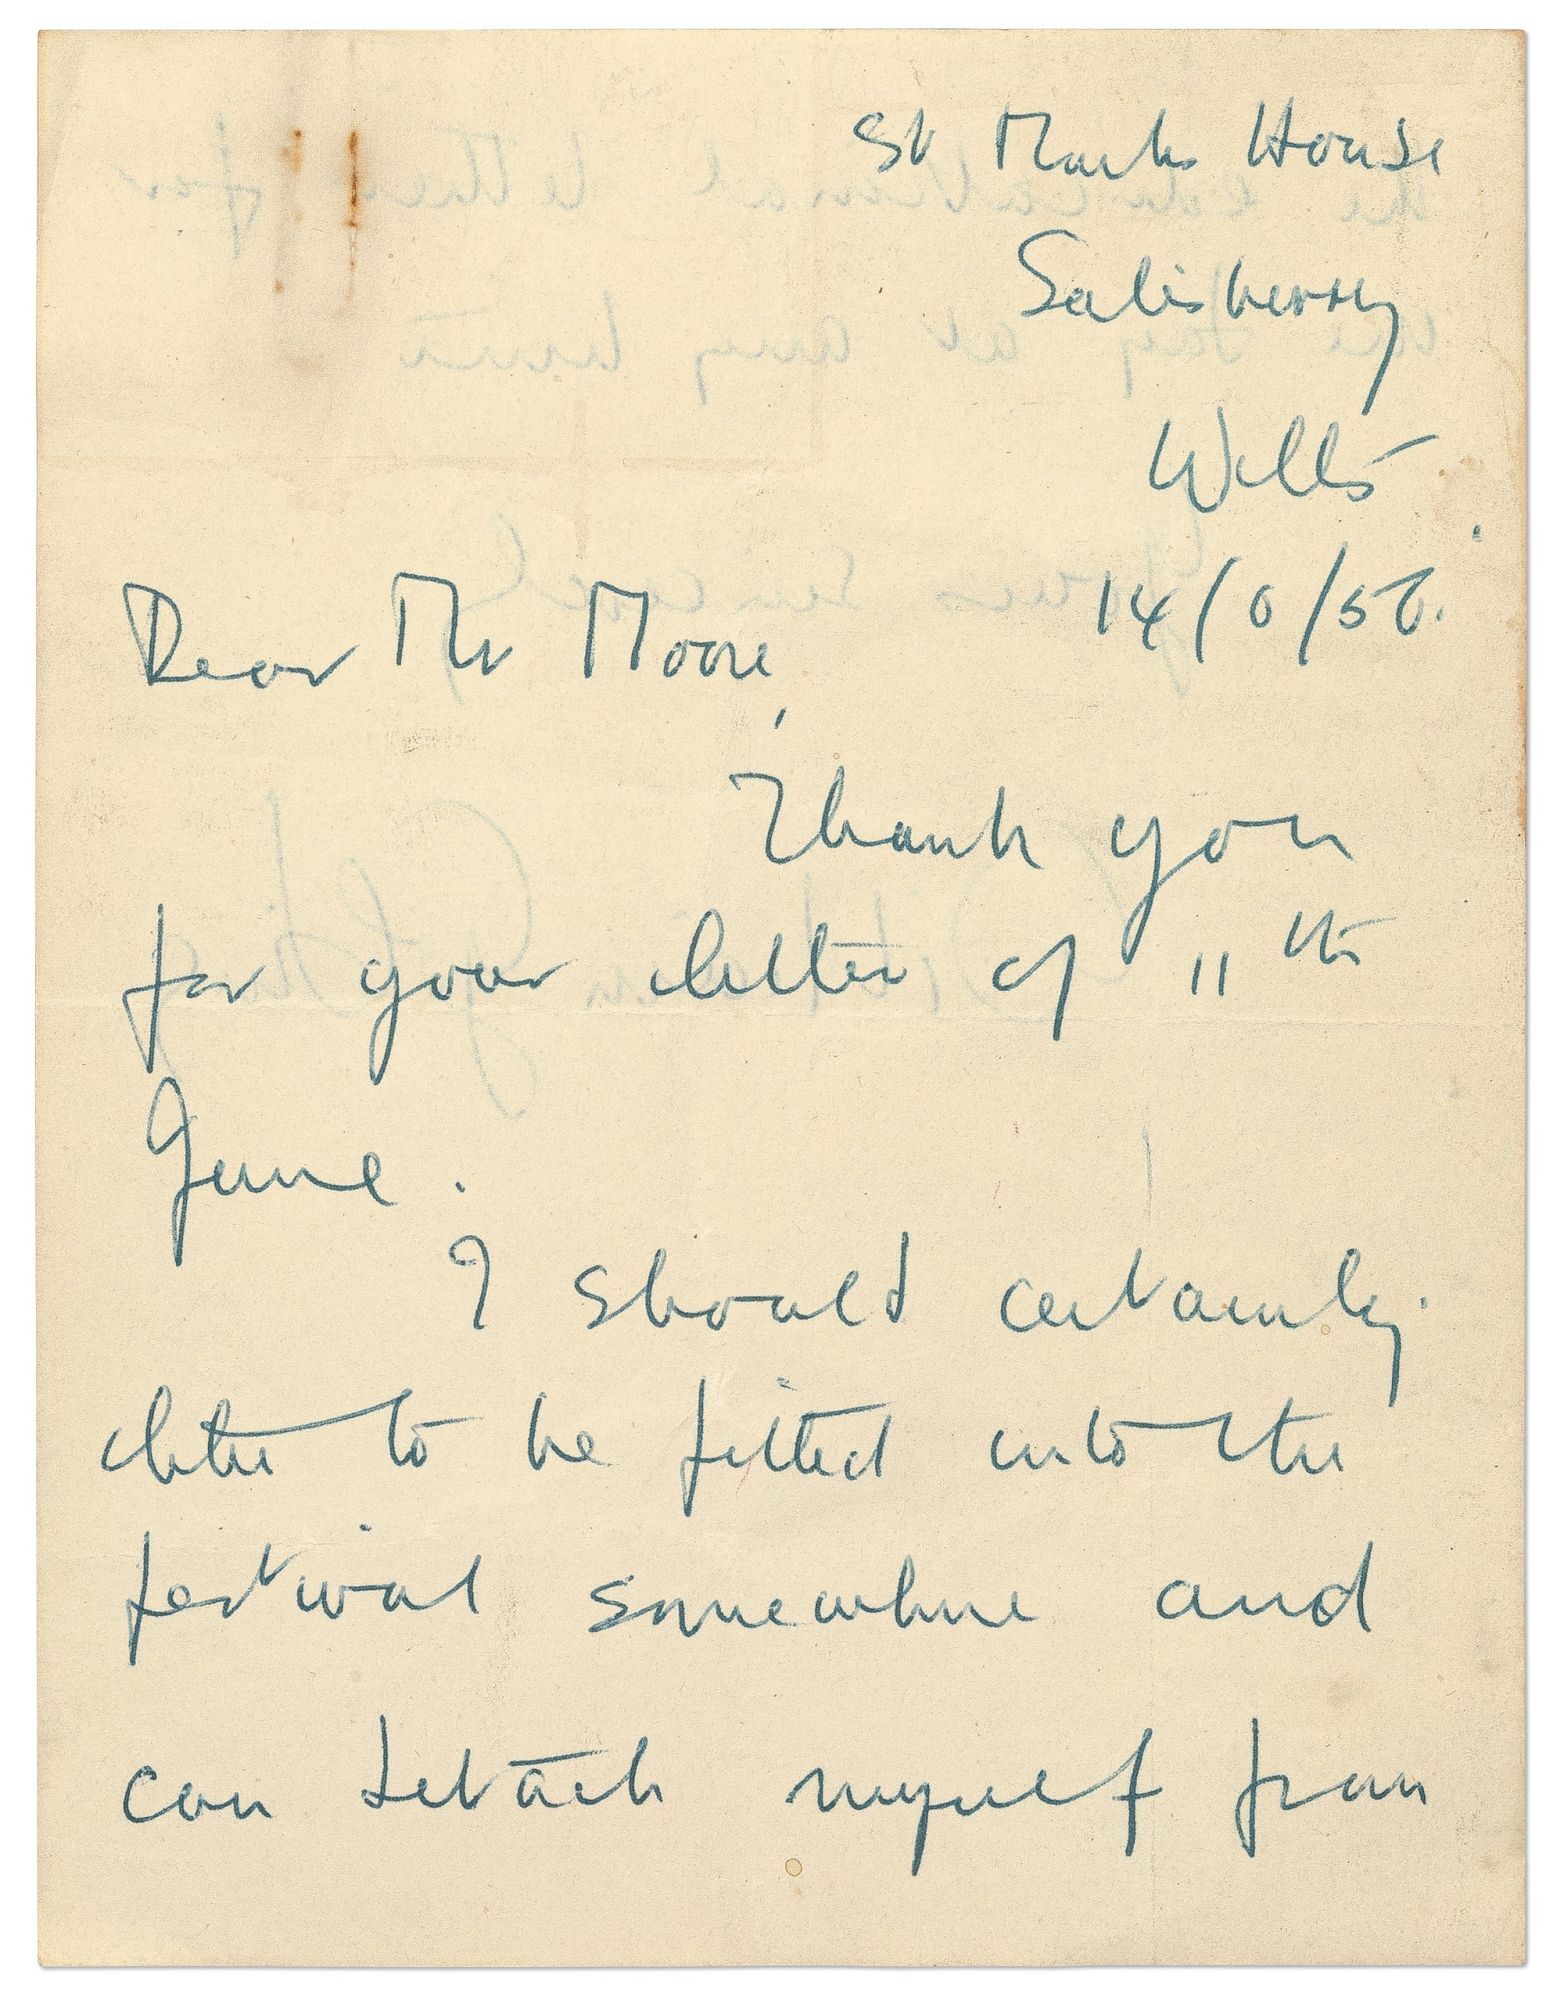 St Marks House
Salisbury
Wilts.
14/6/56.
Dear Mr Moore,
Thank you
for your letter of 11th
June.
I should certainly
like to be fitted into the
festival somewhere and
can detach myself from